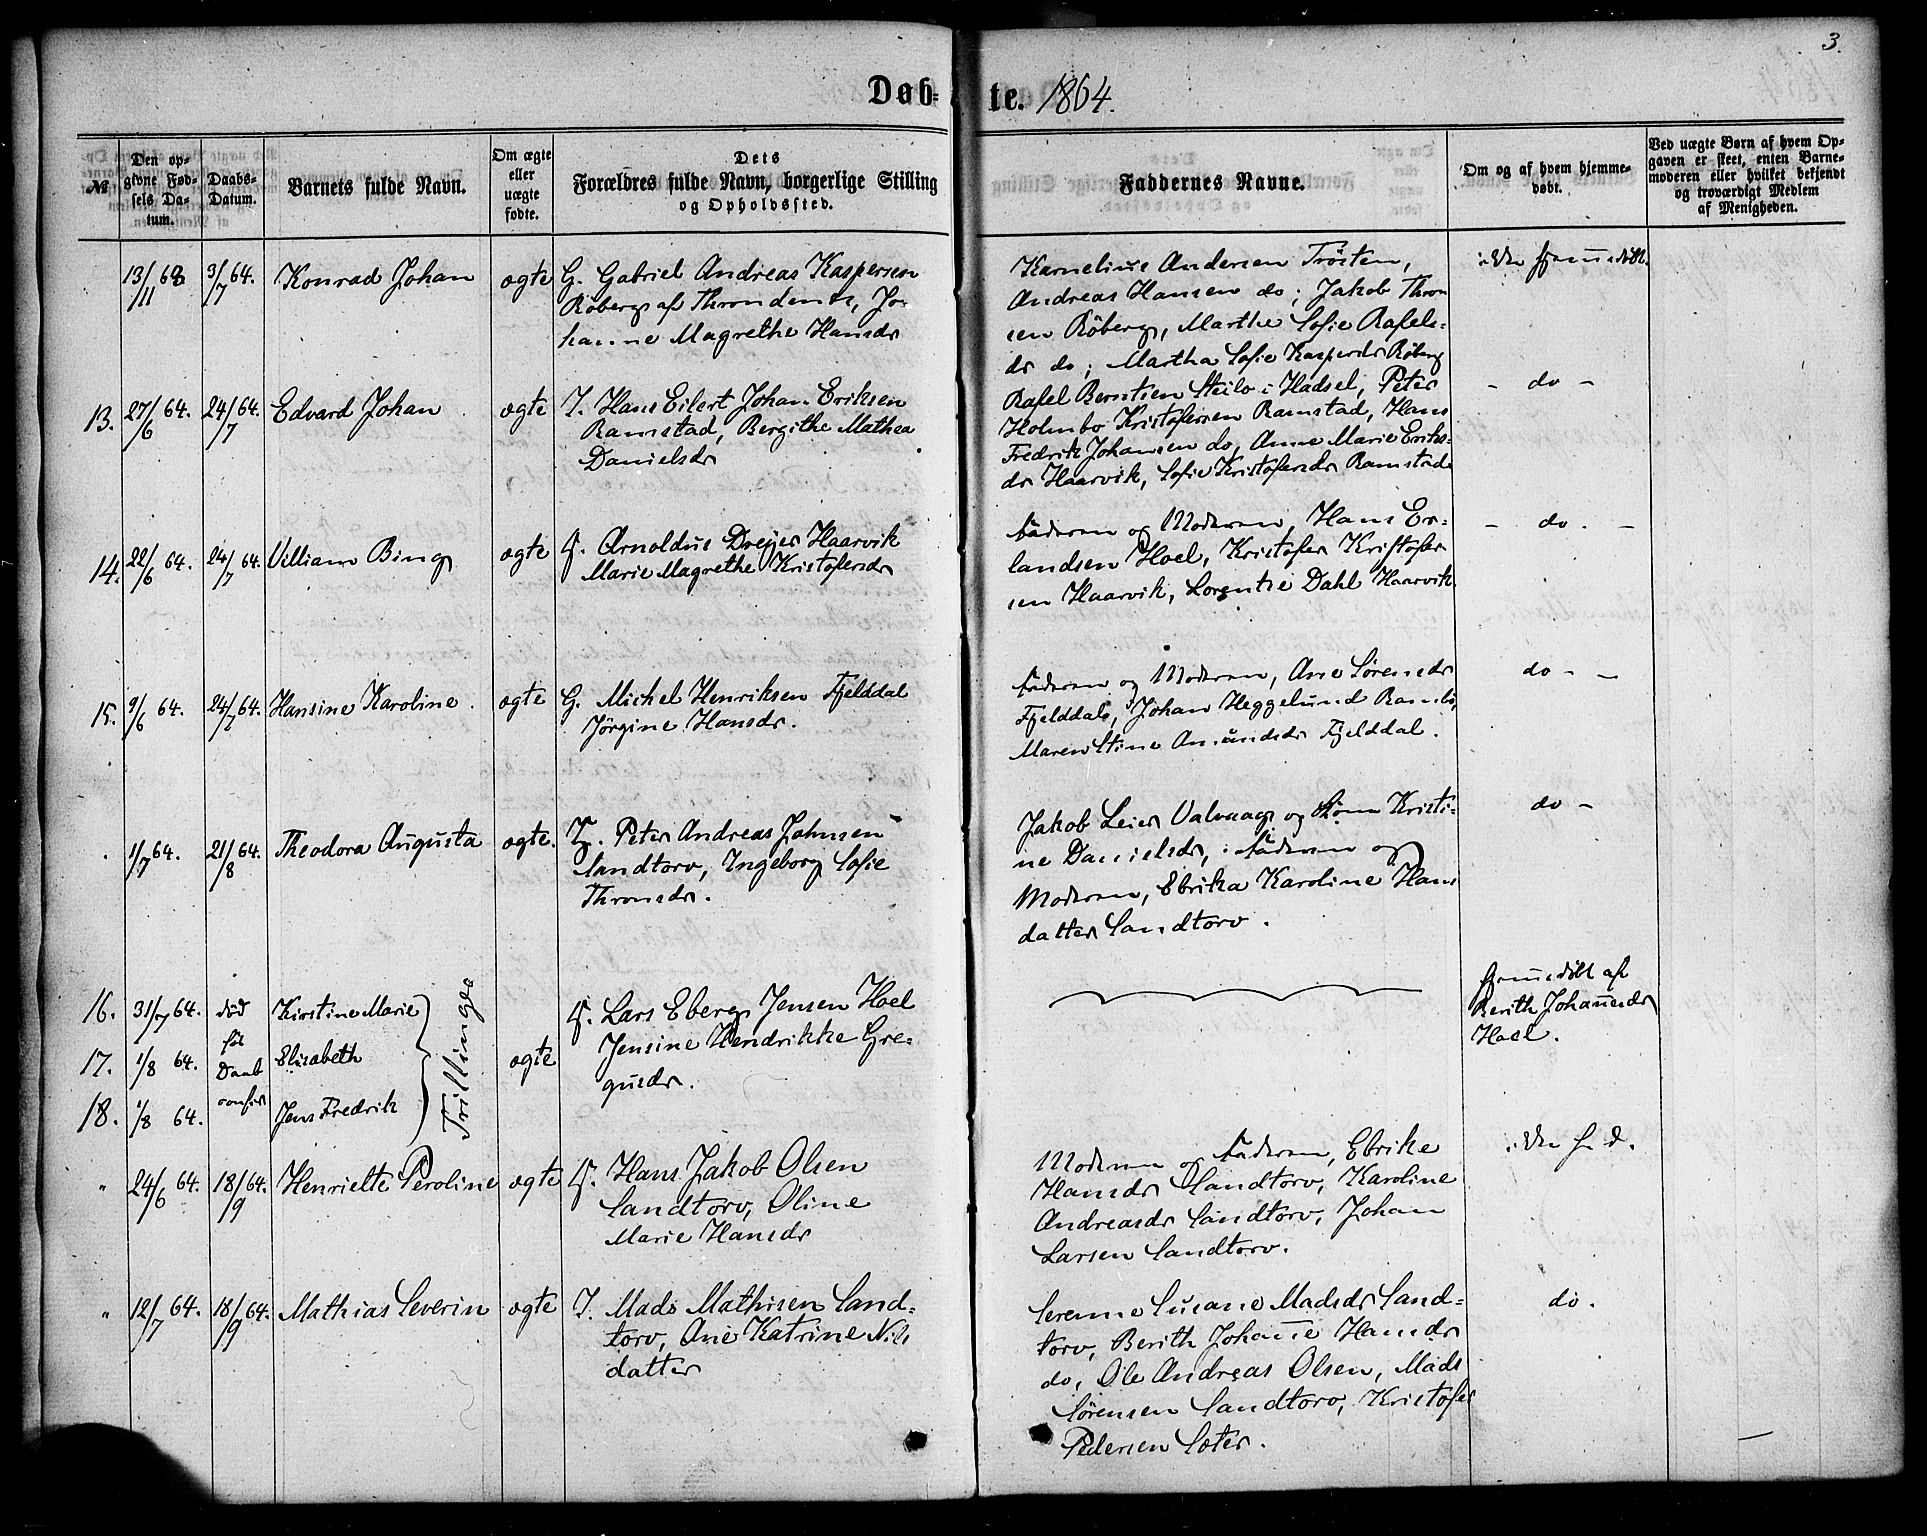 3.
Døbte. 1864.
№
Den opgivne Fødsels Datum.
Daabs-Datum.
Barnets fulde Navn.
Om ægte eller uægte fødte.
Dets Forældres fulde Navn, borgerlige Stilling og Opholdssted.
Faddernes Navne.
Om og af hvem hjemmedøbt.
Ved uægte Børn af hvem Opgaven er skeet, enten Barnemoderen eller hvilket bekjendt og troværdigt Medlem af Menigheden.
13/11 63 3/7 64. Konrad Johan ægte G. Gabriel Andreas Kaspersen
Röberg af Throndenæs, Jo-
hanne Magrethe Hansdr
Karnelius Andersen Trösten,
Andreas Hansen do; Jakob Thron
sen Röberg, Marthe Sofie Rafels-
dr do; Martha Sofie Kaspersdr Röberg
13. 27/6 64. 24/7 64. Edvard Johan ægte I. Hans Eilert Johan Eriksen
Ramstad, Bergithe Mathea
Danielsdr
Rafel Berntsen Steilo i Hadsel, Peter
Holmbo Kristofersen Ramstad, Hans
Fredrik Johansen do, Anne Marie Eriks-
dr Haarvik, Sofie Kristofersdr Ramstad
- do -
14. 22/6 64. 24/7 64. Villiam Bing ægte Arnoldus Dreyer Haarvik
Marie Magrethe Kristofersdr
Faderen og Moderen, Hans Er-
landsen Hoel, Kristofer Kristofer
sen Haarvik, Lorentse Dahl Haarvik
- do. -
15. 9/6 64. 24/7 64. Hansine Karoline. ægte G. Michel Henriksen Fjelddal
Jørgine Hansdr.
Faderen og Moderen, Ane Sørensdr
Fjelddal, Johan Heggelund
Maren Stine Amundsdr Fjelddal.
do - -
1/7 64. 21/8 64. Theodora Augusta ægte. Peter Andreas Johnsen
Sandtorv, Ingeborg Sofie
Thronsdr.
Jakob Leier Valvaag og Kristi-
ne Danielsdr, Faderen og
Moderen, Ebrika Karoline Hans
datter Sandtorv.
do -
16. 31/7 64. Kirstine Marie
17. 1/8 64. Elisabeth
18. 1/8 64. Jens Fredrik
død før Daab
Trillinger
ægte
Lars Eberg Jensen Hoel
Jensine Hendrikke Gre-
gusdr.
hjemdøbt af
Berith Johannesdr
Hoel.
" 24/6 64. 18/9 64. Henriette Peroline ægte Hans Jakob Olsen
Sandtorv, Oline
Marie Hansdr
Moderen og Faderen, Ebrike
Hansdr Sandtorv, Karoline
Andreasdr Sandtorv, Johan
Larsen Sandtorv.
" 12/7 64. 18/9 64. Mathias Severin ægte I. Mads Mathisen Sand-
torv, Ane Katrine Nils
datter
Serenne Susane Madsdr Sand-
torv, Berith Johanne Hansdr
do, Ole Andreas Olsen, Mads
Sörensen Sandtorv, Kristofer
Pedersen Sæter.
do.